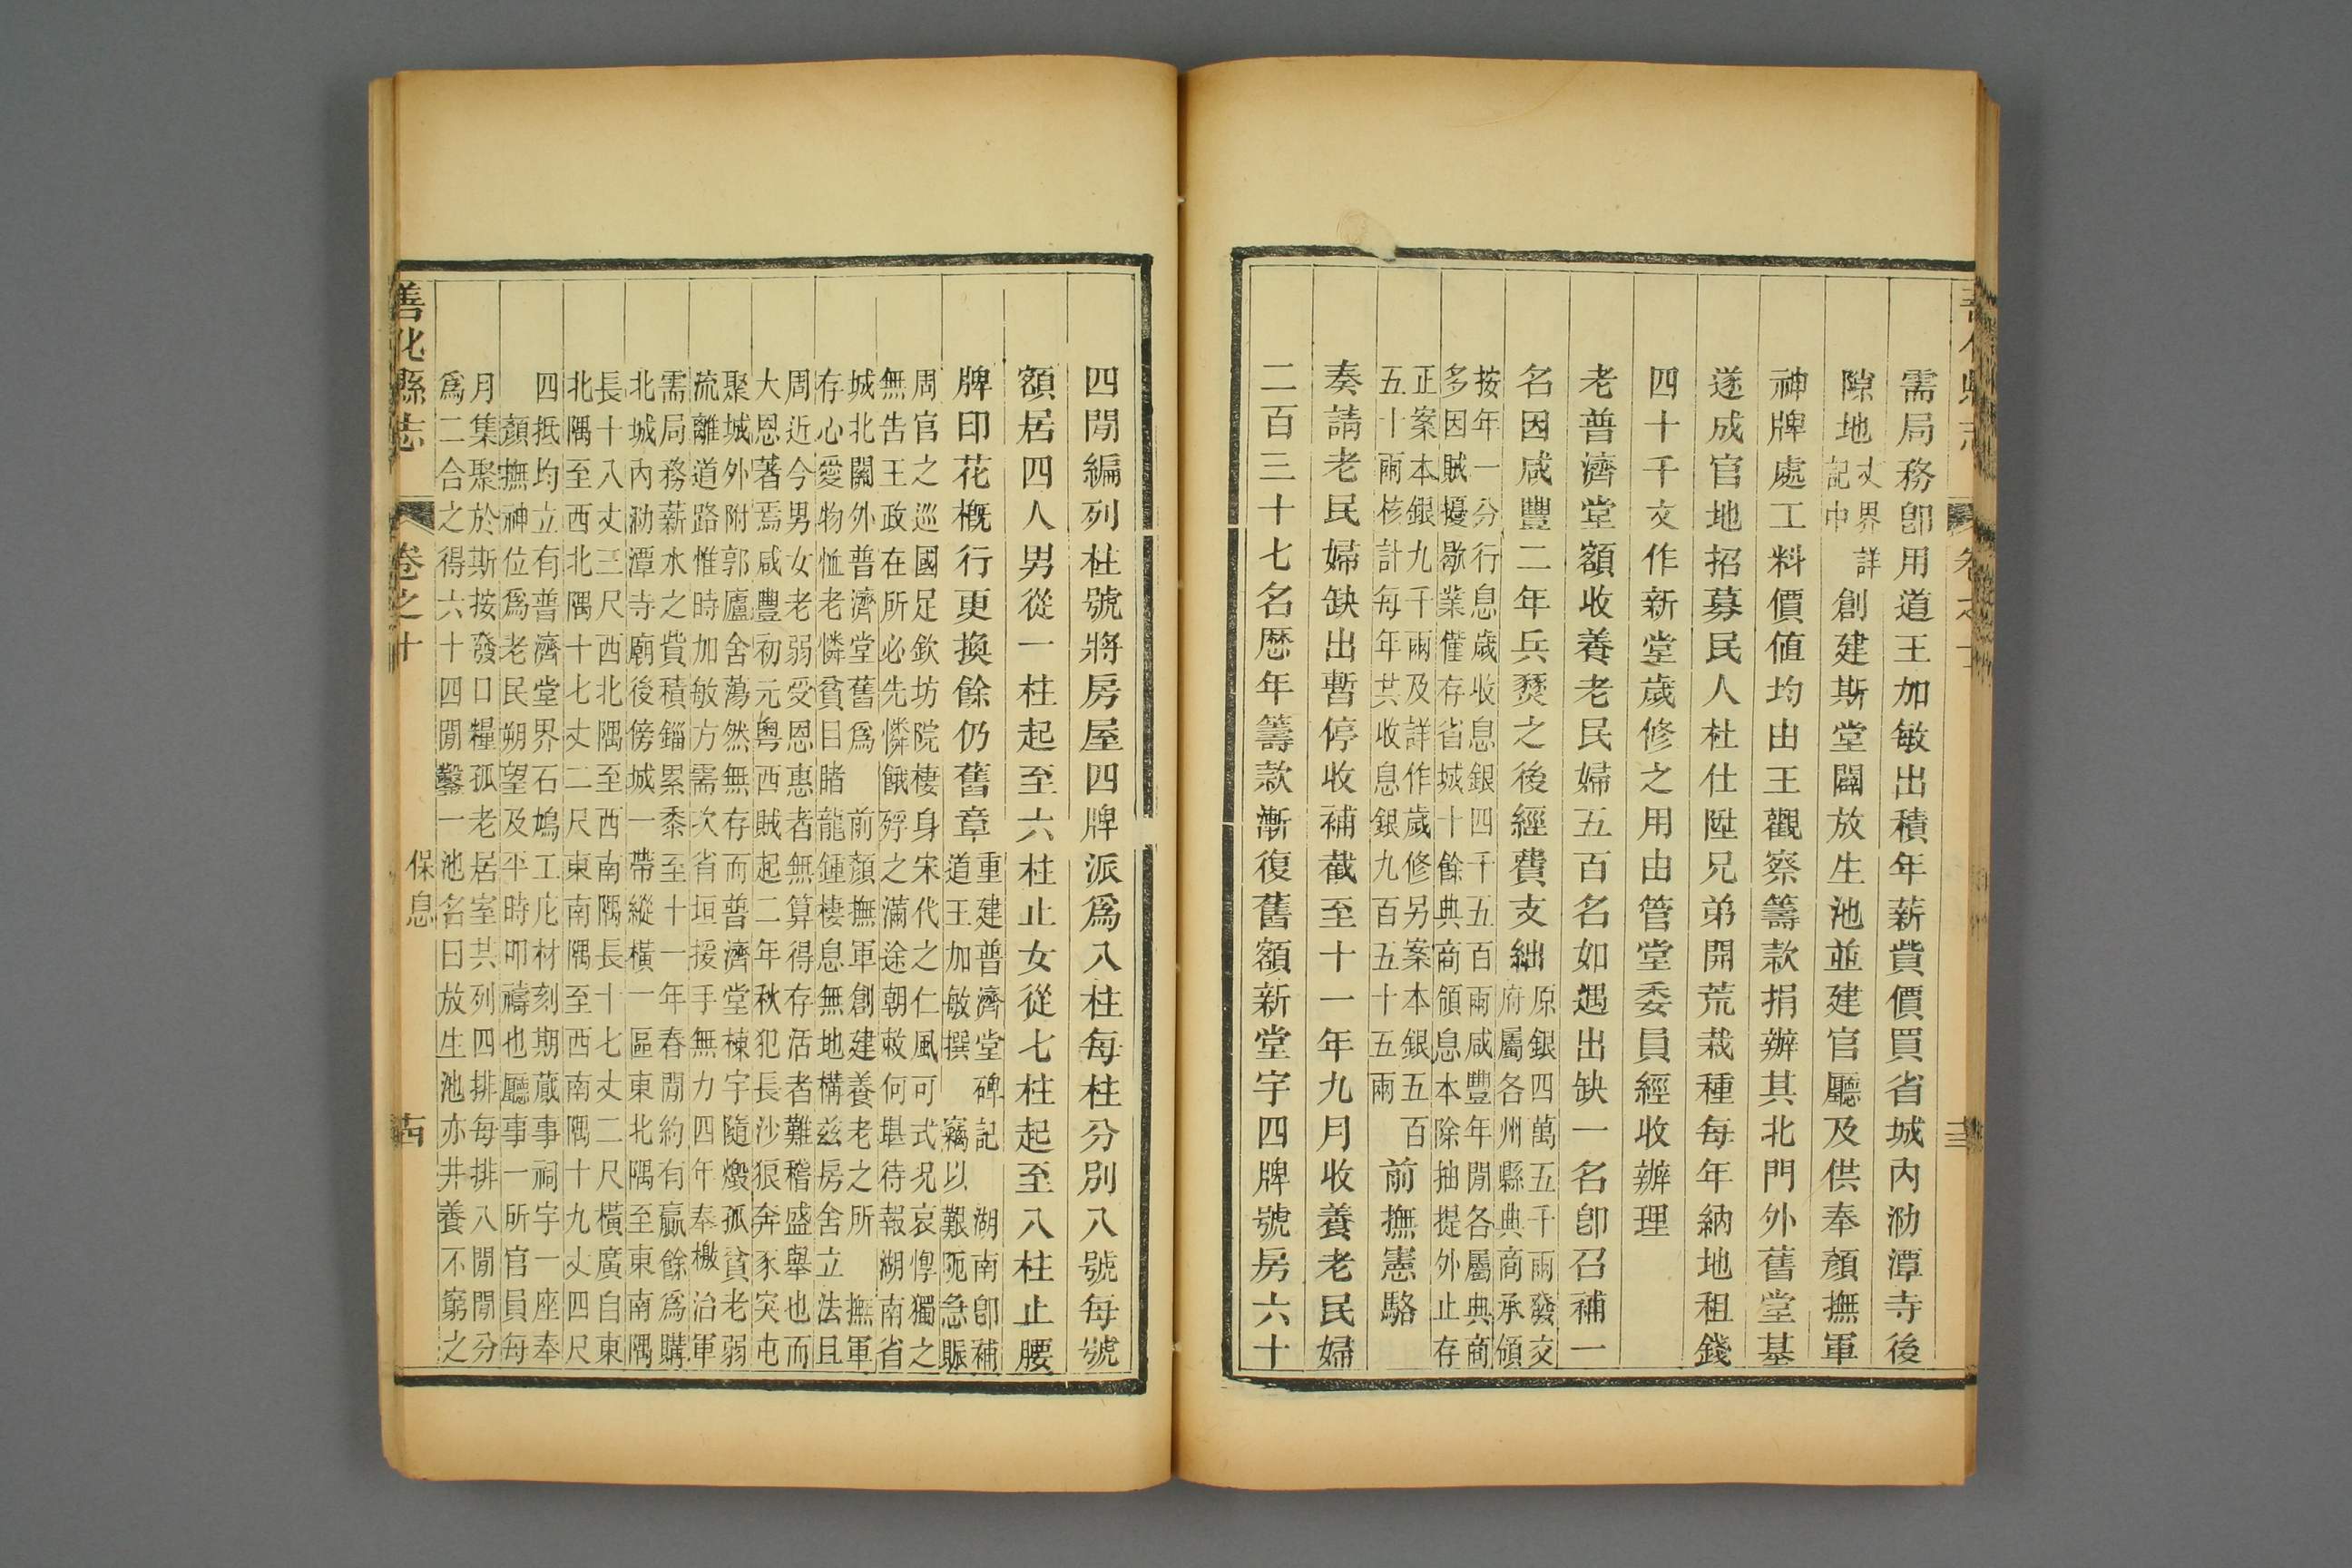 需局務卽用道王加敏出積年薪貲價買省城內泐潭寺後
隙地丈界詳
記中
創建斯堂闢放生池並建官廳及供奉顏撫軍
神牌處工料價値均由王觀察籌款捐辦其北門外舊堂基
遂成官地招募民人杜仕陞兄弟開荒栽種每年納地租錢
四十千文作新堂歲修之用由管堂委員經收辦理
老普濟堂額收養老民婦五百名如遇出缺一名卽召補一
名因咸豐二年兵燹之後經費支絀
原銀四萬五千兩發交
府屬各州縣典商承領
按年一分行息歲收息銀四千五百兩咸豐年閒各屬典商
多因賊擾歇業僅存省城十餘典商領息本除抽提外止存
正案本銀九千兩及詳作歲修另案本銀五百
五十兩核計每年共收息銀九百五十五兩
前撫憲駱
奏請老民婦缺出暫停收補截至十一年九月收養老民婦
二百三十七名歷年籌款漸復舊額新堂宇四牌號房六十
四閒編列柱號將房屋四牌派爲八柱每柱分別八號每號
額居四人男從一柱起至六柱止女從七柱起至八柱止腰
牌印花槪行更換餘仍舊章
重建普濟堂碑記 湖南卽補
道王加敏撰 竊以艱阨急賑
周官之巡國足欽坊院棲身宋代之仁風可式況哀惸獨之
無吿王政在所必先憐餓殍之滿途朝敕何堪待報湖南省
城北關外普濟堂舊爲 前顏撫軍創建養老之所 撫軍
存心愛物恤老憐貧目睹龍鍾棲息無地構茲房舍立法且
周近今男女老弱受恩惠者無算得存活者難稽盛舉也而
大恩著焉咸豐初元粵西賊起二年秋犯長沙狼奔豕突屯
聚城外附郭廬舍蕩然無存而普濟堂棟宇隨燬孤貧老弱
流離道路惟時加敏方需次省垣援手無力四年奉檄治軍
需局務薪水之貲積錙累黍至十一年春閒約有贏餘爲購
北城內泐潭寺廟後傍城一帶縱橫一區東北隅至東南隅
長十八丈三尺西北隅至西南隅長十七丈二尺橫廣自東
北隅至西北隅十七丈二尺東南隅至西南隅十九丈四尺
四抵均立有普濟堂界石鳩工庀材刻期蕆事祠宇一座奉
顏撫神位爲老民朔望及平時叩禱也廳事一所官員每
月集聚於斯按發口糧孤老居室共列四排每排八閒閒分
爲二合之得六十四閒鑿一池名曰放生池亦井養不窮之
善化縣志 卷之十 保息